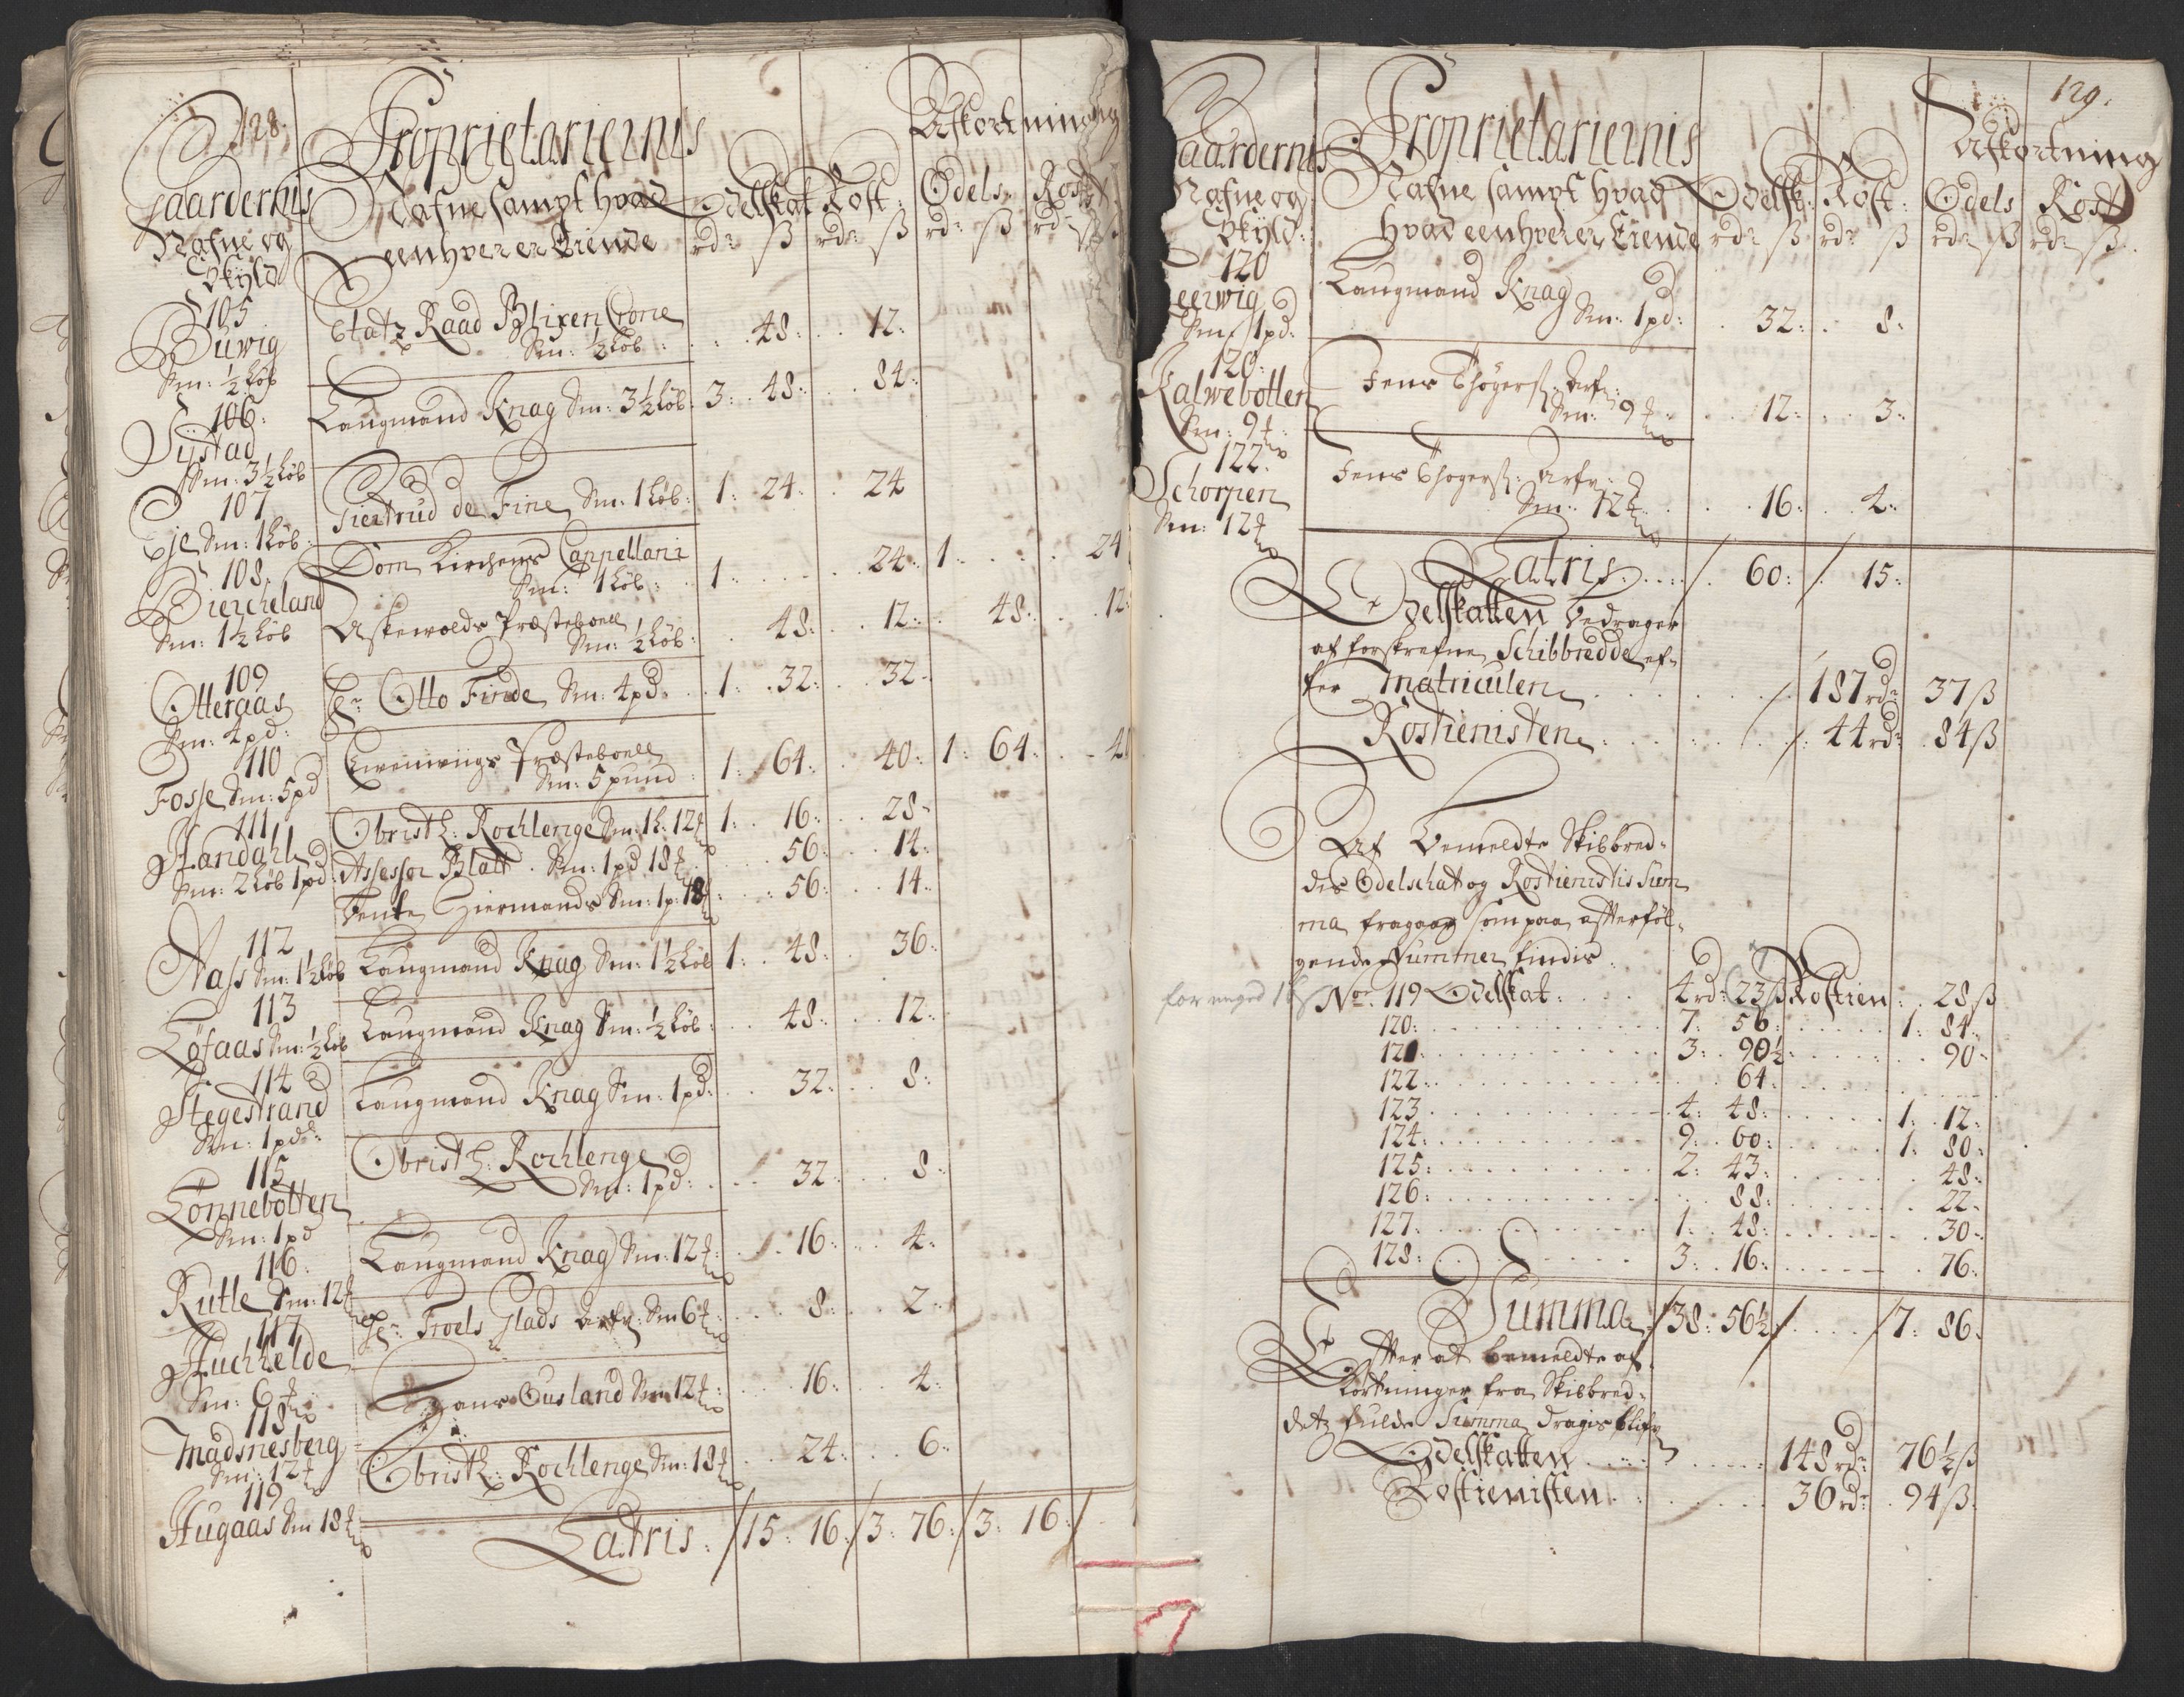 128.
Gaardernis
Nafne og
Skyld
Proprietariernis
Nafne sampt hvad
eenhver er Eiende
Odelskat
rdr ß
Rost:
rdr ß
Afkortning
Odels
rdr ß
Rost
rdr ß
105
Buwig
Sm: ½ Løb
Etatz Raad Blixen Crone
Sm: ½ Løb: 48: 12:
106:
Systad
Sm: 3½ Løb
Laugmand Knag Sm: 3½ Løb: 3: 48: 84:
107
Eje Sm: 1 Løb:
Giertrud de Fine Sm: 1 Løb: 1: 24: 24
108.
Biercheland
Sm: 1½ Løb
Dom Kirchens Cappellani
Sm: 1 Løb: 1: 24: 1: 24
Askewolds Præsteboell
Sm: ½ Løb: 48: 12: 48: 12:
109
Otteraas
Sm: 4 pd:
Hr Otto Finde Sm: 4 pd: 1: 32: 32
110
Fosse Sm: 5 pd
Ewenwigs Præsteboell
Sm: 5 pund: 1: 64: 40: 1: 64: 4
111
Handahl
Sm: 2 Løb 1 pd
Obristl: Rochlenge Sm: 1 L: 12 1: 16: 28
Assessor Blatt Sm: 1 pd 18 56: 14:
Bente Giermands Sm: 1 p: 18 56: 14
112
Nass Sm: 1½ Løb
Laugmand Knag Sm: 1½ Løb 1: 48: 36:
113
Løfaas Sm: ½ Løb
Laugmand Knag Sm: ½ Løb: 48: 12:
114
Stegestrand
Sm: 1 pd:
Laugmand Knag Sm: 1 pd: 32: 8:
115
Lønnebotten
Sm: 1 pd
Obristl: Rochlenge
Sm: 1 pd: 32 8:
116
Rutle Sm: 12
Laugmand Knag Sm: 12 16: 4:
117
Huchelde
Sm: 6
Hr Troels Glads Arfv: Sm 6 8: 2:
118
Madsnesberg
Sm: 12
Hans Ousland Sm 12 16: 4:
119
Hugaas Sm 18
Obristl: Rochlenge Sm: 18 24: 6:
Latris: 15: 16: 3: 76: 3: 16:
129.
aardernis
Nafne og
Skyld:
Proprietariernis
Nafne sampt hvad
hvad eenhver er Eiende
Odelsk:
rdr ß
Rost:
rdr ß
Afkortning
Odels
rdr ß
Rost
rdr ß
120
eerwig
Sm: 1 pd:
Laugmand Knag
Sm: 1 pd: 32: 8:
120:
Kalwebotten
Sm: 9
Jens Thøgers: Arfv:
Sm: 9 12: 3:
122.
Schorpen
Sm: 12
Jens Thogers: Arfv:
Sm: 12 16: 4:
Latris 60: 15:
Odelskatten bedrager
af forskrefne Schibbredde ef¬
ter Matriculen 187 rdr 37 ß
Rostienisten 44 rdr 84 ß
Af bemeldte Skibbred¬
dis Odelschat og Rostienistis Sum
ma fragaar som paa effterføl¬
gende Nummer findis
for meged
No: 119 Odelskat: 4 rd: 23 ß Rostien: 28 ß
120: 7: 56: 1: 84:
121: 3: 90½: 90
122: 64:
123 4: 48: 1: 12:
124: 9: 60: 1: 80:
125: 2: 43: 48:
126: 88: 22
127: 1: 48: 30:
128: 3: 16: 76:
Summa 38: 56½ 7: 86.
Effter at bemeldte af¬
kortninger fra Skibbred¬
detz fulde Summa dragis blifr
Odelskatten 148 rdr 76½ ß
Rostienisten 36 rdr 94 ß